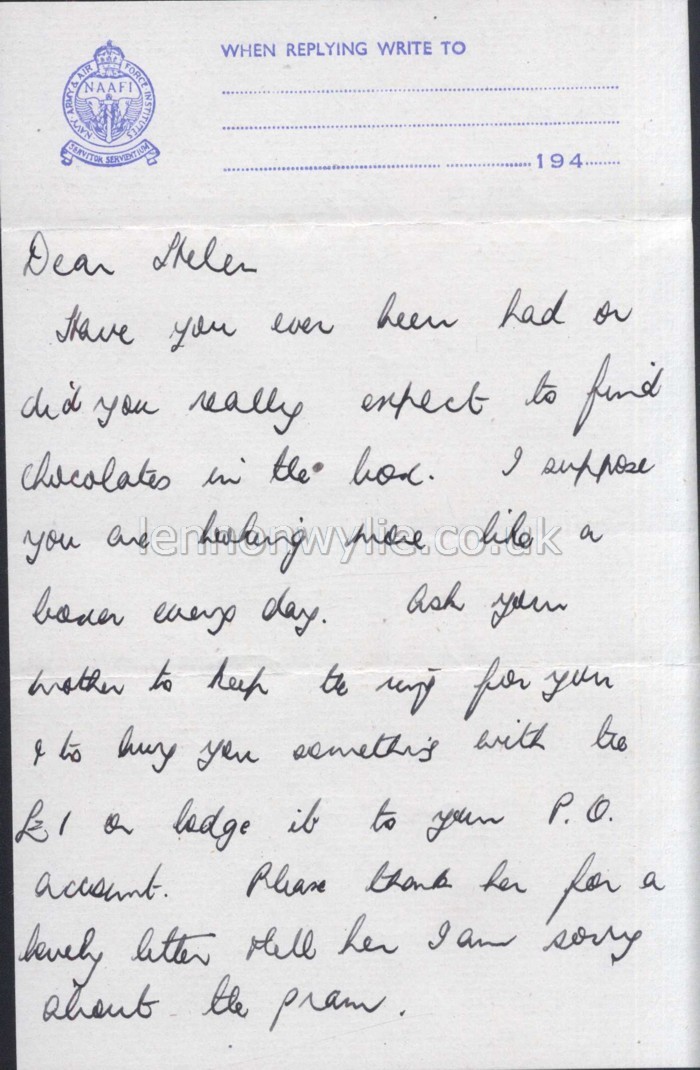 NAVY, ARMY & AIR FORCE INSTITUTES
NAAFI
SERVITOR SERVIENTIUM
WHEN REPLYING WRITE TO
194
Dear Helen
Have you ever been had or
did you really expect to find
chocolates in the box. I suppose
you are looking more like a
lennonwylie.co.uk
boxer every day. Ask your
mother to keep the ring for you
& to buy you something with the
£1 or lodge it to your P.O.
account. Please thank her for a
lovely letter & tell her I am sorry
about the pram.